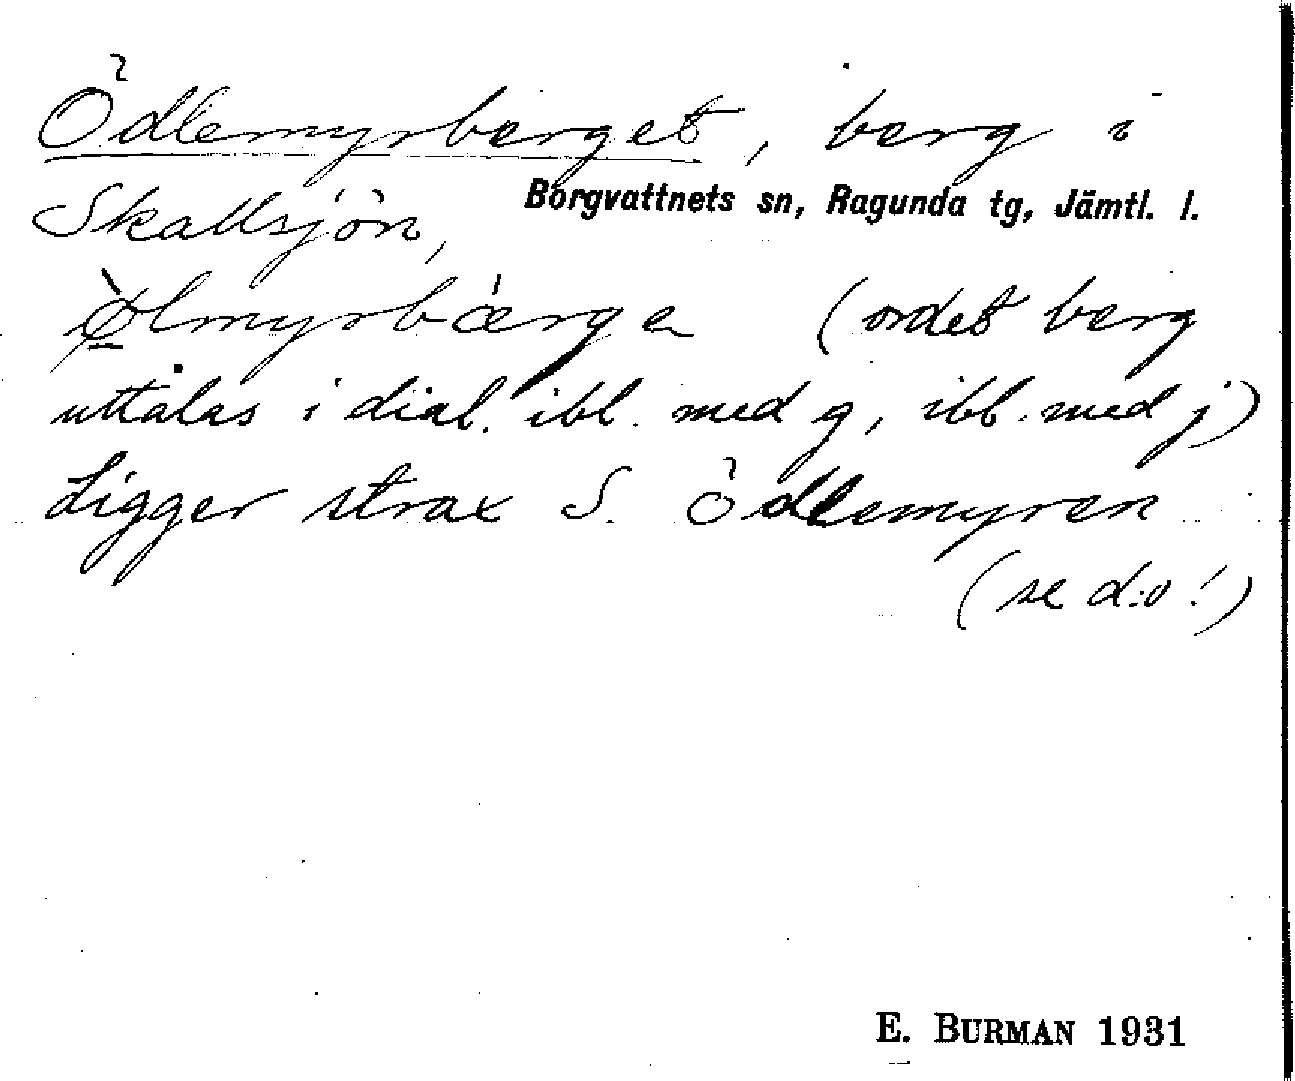 Ödlemyrberget, berg i
Skallsjön, Borgvattnets sn, Ragunda tg, Jämtl. l.
ø̱̀lmyrbærge (ordet berg
uttalas i dial. ibl. med g, ibl. med j)
Ligger strax S. Ödlemyren
(se d:o!)
E. BURMAN 1931